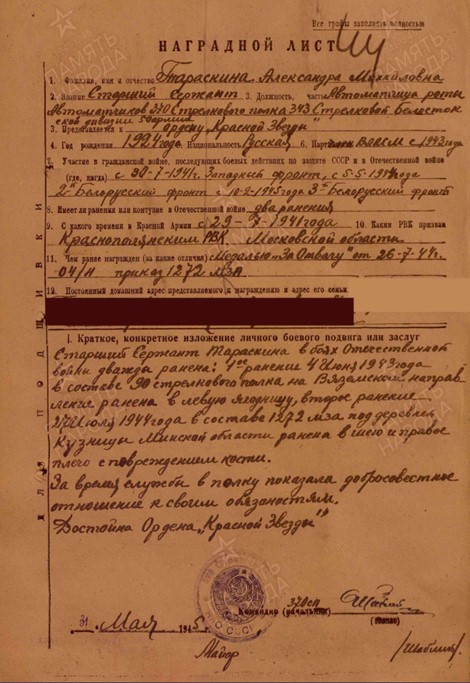 Все графы заполнять полностью
НАГРАДНОЙ ЛИСТ
1. Фамилия, имя и отчество Тараскина Александра Михайловна
2. Звание Старший Сержант 3. Должность, часть Автоматчица роты
Автоматчиков 370 Стрелкового полка 343 Стрелковой Белосток
ской дивизии 50 армии
3. Представляется к "Ордену Красной Звезды"
4. Год рождения 1921 года 5. Национальность Русская 6. Партийн ВЛКСМ с 1942 года
7. Участие в гражданской войне, последующих боевых действиях по защите СССР и в Отечественной войне
(где, когда) с 30-7-1941г. Западный фронт, с 5-5-1944 года
2й Белорусский фронт 1945 года 3й Белорусский фронт
8. Имеет ли ранения или контузии в Отечественной войне два ранения
9. С какого времени в Красной Армии с 29-7-1941 года 10. Каким РВК призван
Краснополянским РВК, Московской области
11. Чем ранее награжден (за какие отличия) Медалью "За Отвагу" от 26-7-44г.
04/н приказ 1272 МЗА
12. Постоянный домашний адрес представляемого к награждению и адрес его семьи
I. Краткое, конкретное изложение личного боевого подвига или заслуг
Старший Сержант Тараскина в боях Отечественной
войны дважды ранена: 1е ранение 4 Июня 1943 года
в составе 90 стрелкового полка на Вяземском направ
лении ранена в левую ягодицу, второе ранение
27 Июля 1944 года в составе 1272 мза под деревней
Кузницы Минской области ранена в шею и правое
плечо с повреждением кости.
За время службы в полку показала добросовестное
отношение к своим обязаностям.
Достойна Ордена "Красной Звезды"
370 сп
Командир (начальник)
31 Мая 1945 г.
Майор /Шаблий/
ПАМЯТЬ НАРОДА